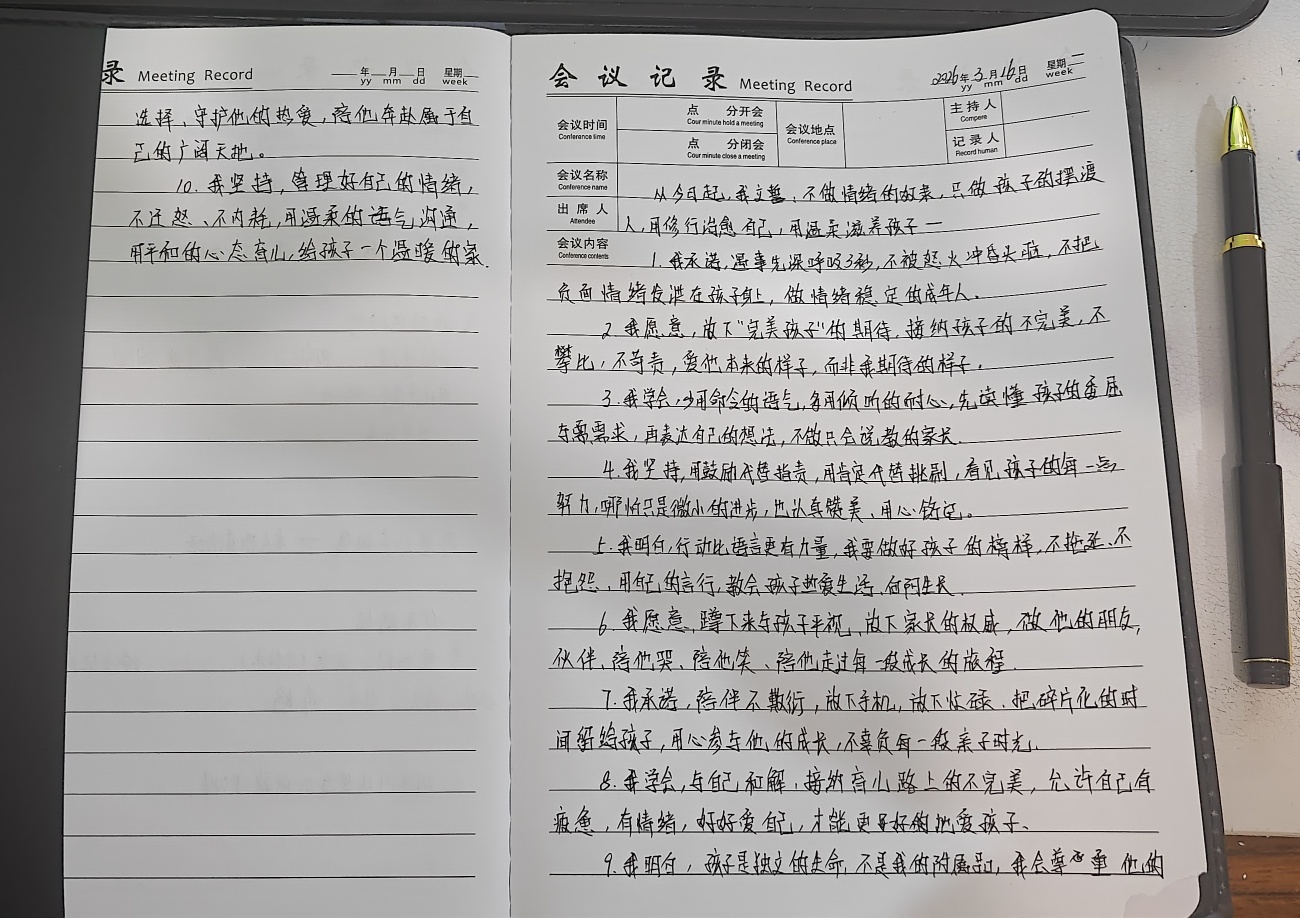 会议记录 Meeting Record 2026年3月16日 星期
yy mm dd week
会议时间 Conference time 点 分开会 Cour minute hold a meeting 点 分闭会 Cour minute close a meeting 会议地点 Conference place 主持人 Compere 记录人 Record human
会议名称 Conference name
出席人 Attendee
会议内容 Conference contents
从今日起，我立誓：不做情绪的奴隶，只做孩子的摆渡
人，用修行治愈自己，用温柔滋养孩子—
1. 我承诺，遇事先深呼吸3秒，不被怒火冲昏头脑，不把
负面情绪发泄在孩子身上，做情绪稳定的成年人。
2. 我愿意，放下"完美孩子"的期待，接纳孩子的不完美，不
攀比，不苛责，爱他本来的样子，而非我期待的样子。
3. 我学会，少用命令的语气，多用倾听的耐心，先读懂孩子的委屈
与需求，再表达自己的想法，不做只会说教的家长。
4. 我坚持，用鼓励代替指责，用肯定代替挑剔，看见孩子的每一点
努力，哪怕只是微小的进步，也认真赞美、用心铭记。
5. 我明白，行动比语言更有力量，我要做好孩子的榜样，不拖延、不
抱怨，用自己的言行，教会孩子热爱生活、向阳生长。
6. 我愿意，蹲下来与孩子平视，放下家长的权威，做他的朋友，
伙伴，陪他哭、陪他笑、陪他走过每一段成长的旅程。
7. 我承诺，陪伴不敷衍，放下手机，放下忙碌，把碎片化的时
间留给孩子，用心参与他的成长，不辜负每一段亲子时光。
8. 我学会，与自己和解，接纳育儿路上的不完美，允许自己有
疲惫，有情绪，好好爱自己，才能更好的地爱孩子、
9. 我明白，孩子是独立的生命，不是我的附属品，我会尊重他的
录 Meeting Record 年 月 日 星期
yy mm dd week
选择、守护他的热爱，陪他奔赴属于自
己的广阔天地。
10. 我坚持，管理好自己的情绪，
不迁怒、不内耗，用温柔的语气沟通，
用平和的心态育儿，给孩子一个温暖的家.